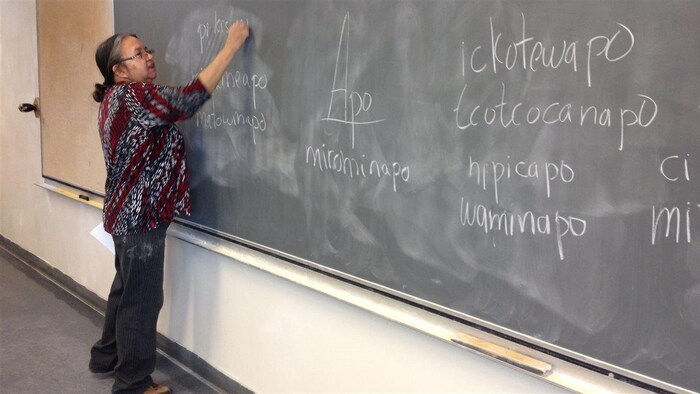 Apo
mirominapo
ickotewapo
tcotcocanapo
nipicapo
waminapo
ci
mi